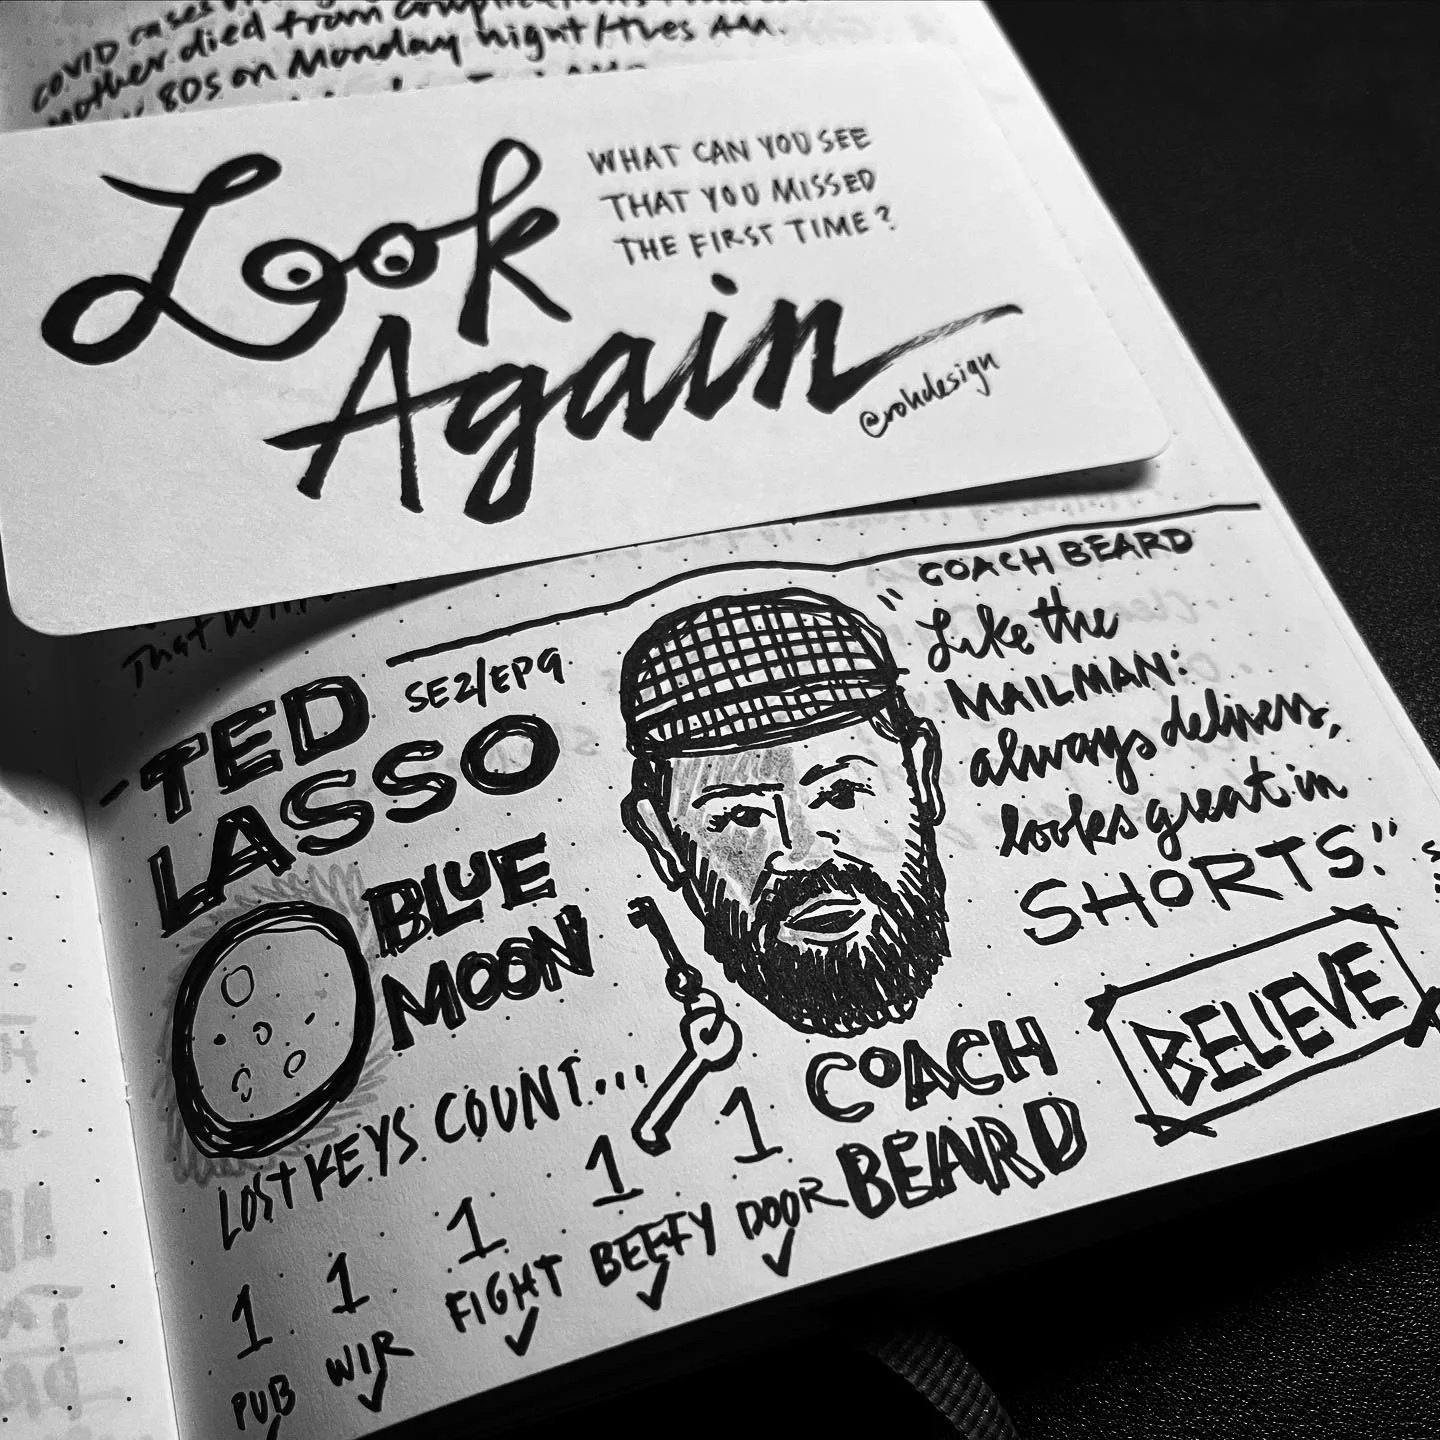 COVID cases
mother died from complications
80s on Monday night/tues AM.
Look
Again
WHAT CAN YOU SEE
THAT YOU MISSED
THE FIRST TIME?
@rohdesign
That
TED
LASSO
SE2/EP9
BLUE
MOON
"COACH BEARD
Like the
MAILMAN:
always delivers,
looks great in
SHORTS."
BELIEVE
COACH
BEARD
LOST KEYS COUNT...
1 1 1 1 1
PUB WIR FIGHT BEEFY DOOR